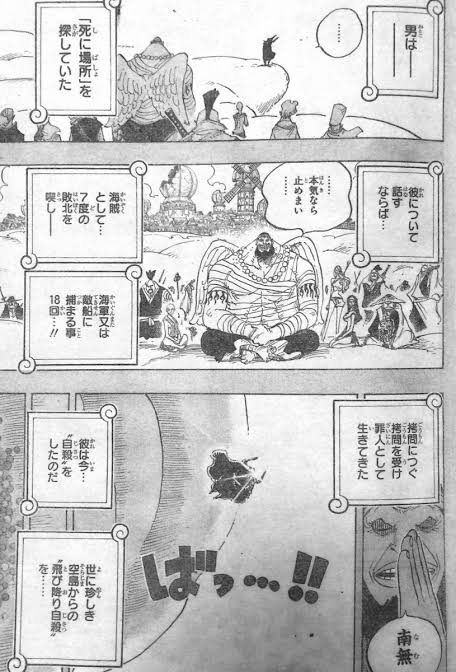 男は――
……
「死に場所」を
探していた
彼について
話す
ならば…
……
本気なら
止めまい
海賊
として…
7度の
敗北を
喫し―
海軍又は
敵船に
捕まる事
18回…!!
拷問につぐ
拷問を受け
罪人として
生きてきた
南無
ばっ…!!
彼は今…
〝自殺〟を
したのだ
世に珍しき
空島からの
〝飛び降り自殺〟
を……